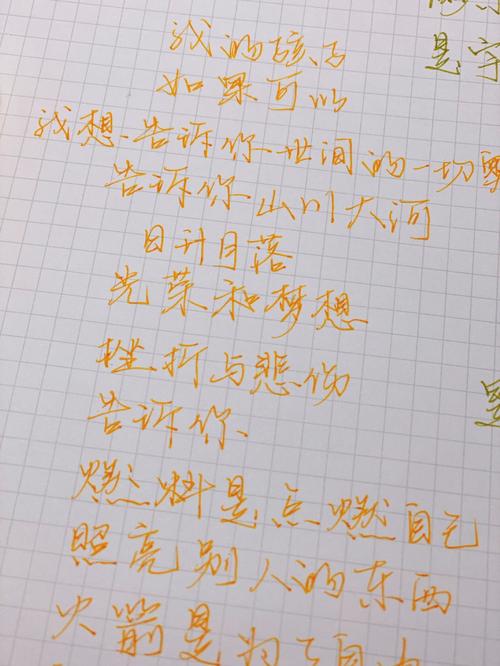 我的孩子
如果可以
我想告诉你世间的一切
告诉你山川大河
日升月落
光荣和梦想
挫折与悲伤
告诉你
燃料是点燃自己
照亮别人的东西
火箭是为了自由
是